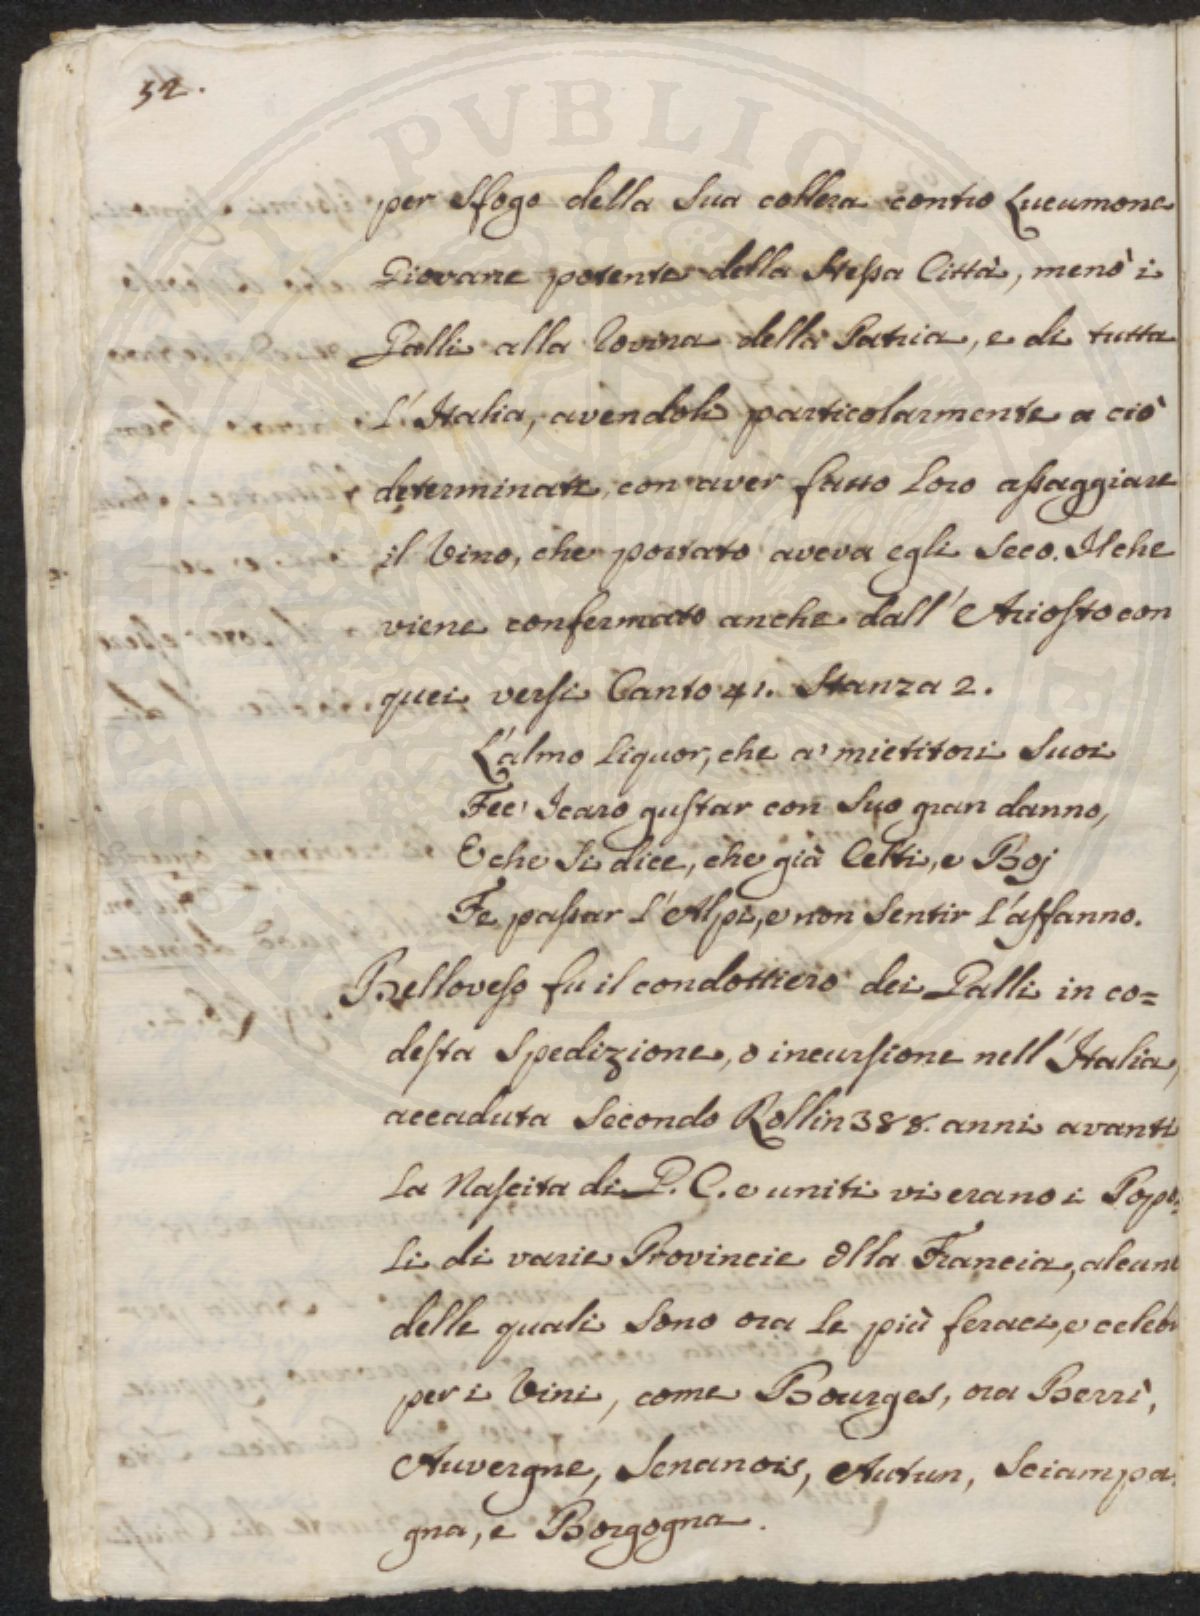 52.
per sfogo della sua collera contro Lucumone
Giovane potente della stessa Città, menò i
Galli alla rovina della Patria, e di tutta
l'Italia, avendoli particolarmente a ciò
determinati, con aver fatto loro assaggiare
il Vino, che portato aveva egli seco. Ilche
viene confermato anche dall'Ariosto con
quei versi Canto 41. Stanza 2.
L'almo liquor, che a' mietitori suoi
Fec' Icaro gustar con suo gran danno,
E che si dice, che già Celti, e Boj
Fe passar l'Alpi, e non sentir l'affanno.
Belloveso fu il condottiero dei Galli in co=
desta spedizione, o incursione nell'Italia,
accaduta secondo Rollin 388. anni avanti
la Nascita di G. C. e uniti vi erano i Popo=
li di varie Provincie dlla Francia, alcune
delle quali sono ora le più feraci, e celebri
per i Vini, come Bourges, ora Berrì,
Auvergne, Senanois, Autun, Sciampa=
gna, e Borgogna.